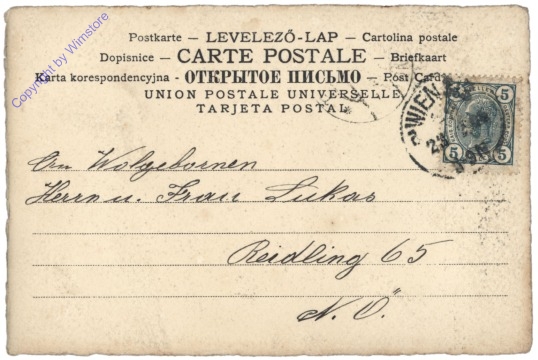 Postkarte – LEVELEZŐ-LAP – Cartolina postale
Dopisnice – CARTE POSTALE – Briefkaart
Karta korespondencyjna - ОТКРЫТОЕ ПИСЬМО – Post Card
UNION POSTALE UNIVERSELLE
TARJETA POSTAL
Copyright by Wimstore
WIEN
5 5
5 5
An Wolgebornen
Herrn u. Frau Lukas
Reidling 65
N. Ö.